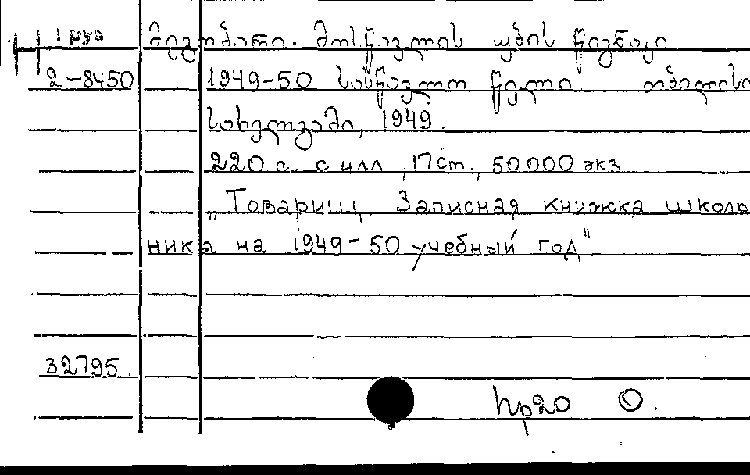 1 груз მეგობარი. მოსწავლის უბის წიგნაკი
2-8450 1949-50 სასწავლო წელი. თბილისი
სახელგამი, 1949.
220 с. с илл, 17 ст., 50000 экз
„Товарищ. Записная книжка школь
ника на 1949-50 учебный год"
32795.